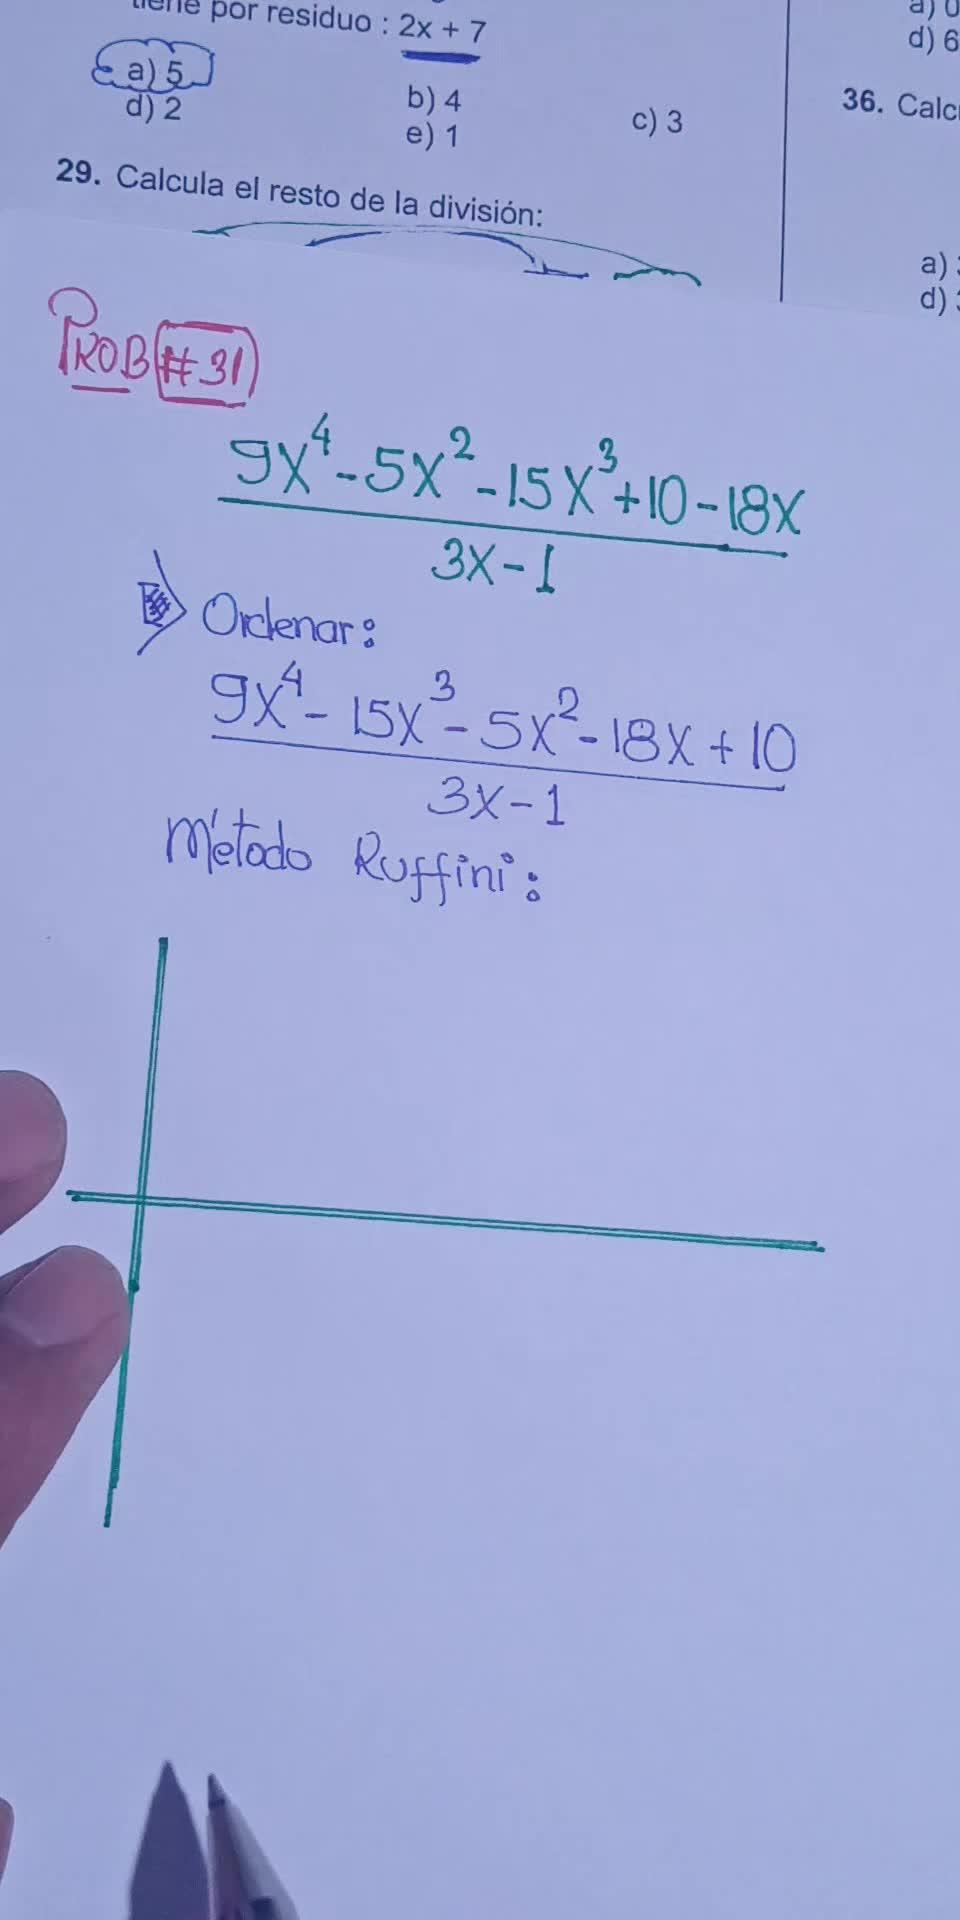 por residuo : 2x + 7
a) 5
b) 4
c) 3
d) 2
e) 1
29. Calcula el resto de la división:
d) 6
36.
a)
d)
PROB #31
9x⁴ - 5x² - 15x³ + 10 - 18x
3x - 1
Ordenar:
9x⁴ - 15x³ - 5x² - 18x + 10
3x - 1
Método Ruffini: